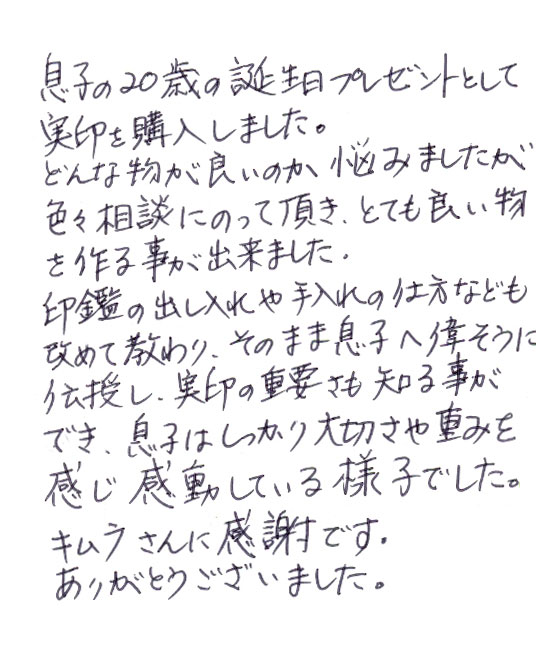 息子の20歳の誕生日プレゼントとして
実印を購入しました。
どんな物が良いのか、悩みましたが
色々相談にのって頂き、とても良い物
を作る事が出来ました。
印鑑の出し入れや手入れの仕方なども
改めて教わり、そのまま息子へ偉そうに
伝授し、実印の重要さも知る事が
でき、息子はしっかり大切さや重みを
感じ感動している様子でした。
キムラさんに感謝です。
ありがとうございました。